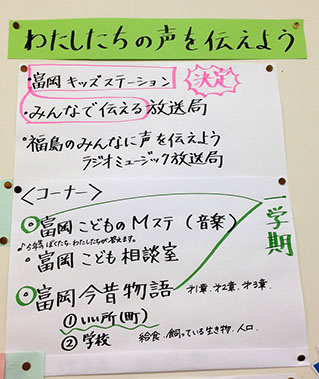 わたしたちの声を伝えよう
・富岡キッズステーション 決定
・みんなで伝える放送局
・福島のみんなに声を伝えよう
ラジオミュージック放送局
＜コーナー＞
・富岡こどものMステ（音楽）
♪今高 ぼくたち、わたしたちが答えます。
・富岡こども相談室
・富岡今昔物語 オ1章、オ2章、オ3章、
①いい所(町)
②学校 給食、飼っている生き物、人口、
一学期